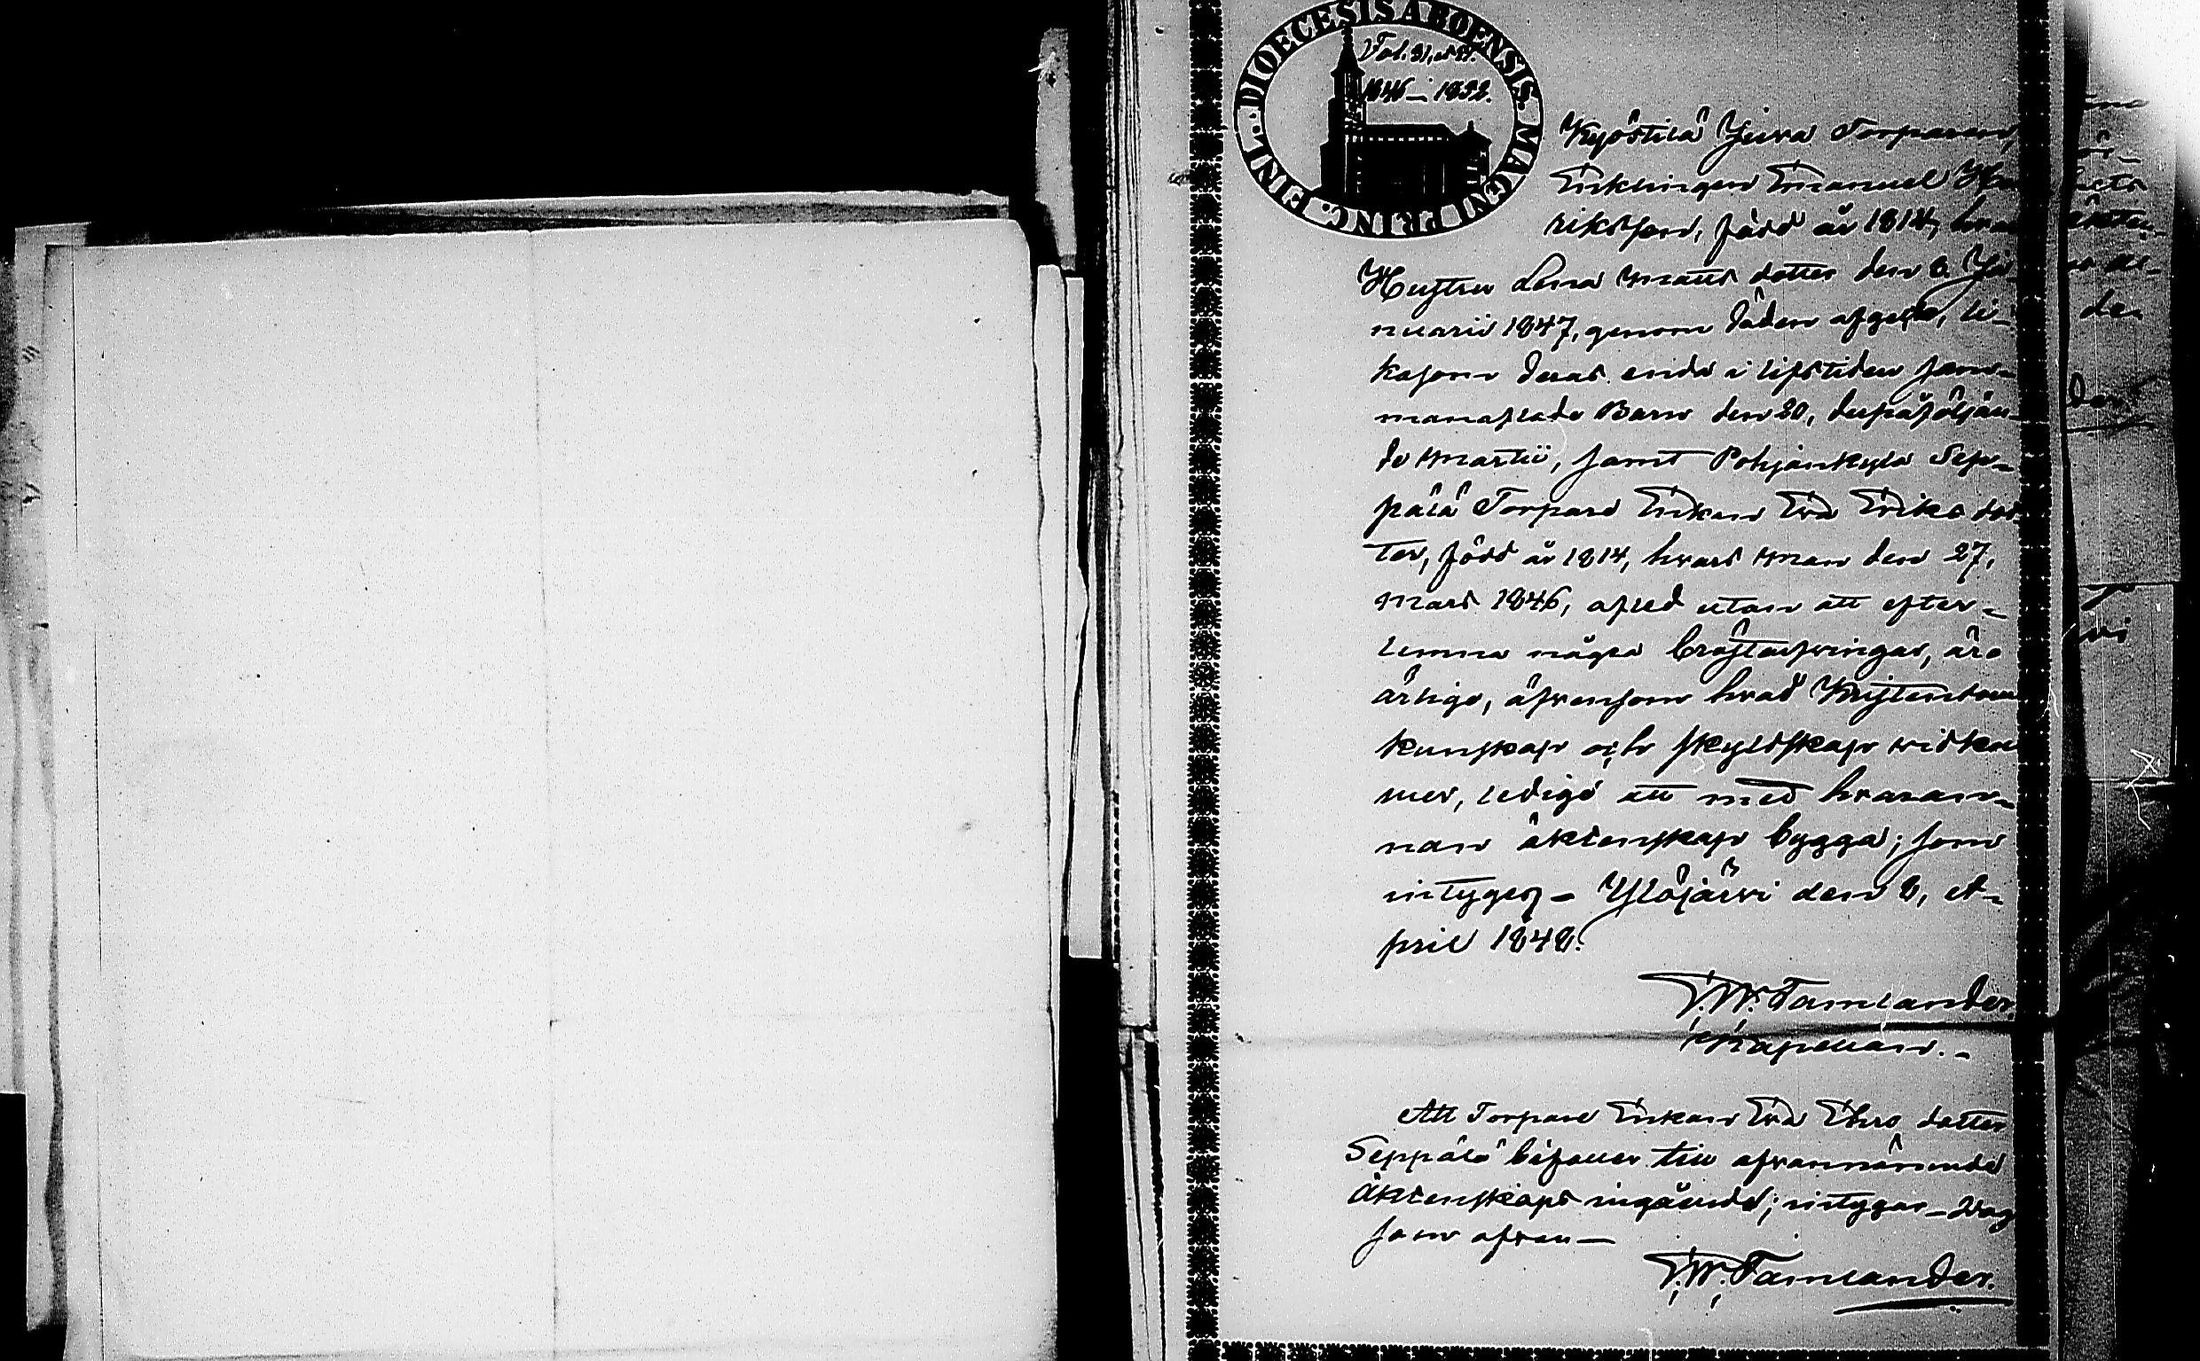 FINL. DIOECESIS ABOENSIS. MAGNI PRINC.
Fol. 31, 
1846–1852.
Kyöstilä Juva Torparen,
Enklingen Emanuel Hen
riksson, född år 1814, hvars
Hustru Lena Matts dotter den 8. Ja
nuarii 1847, genom döden afgick, li-
kasom deras enda i lifstiden sam-
manaflade Barn den 20, derpåföljan-
de Martii, samt Pohjankylä Sep-
pälä Torpare Enkan Eva Eriks dot
ter, född år 1814, hvars Man den 27,
Mars 1846, afled utan att efter-
lemna några bröstarfvingar, äro
ärlige, äfvensom hvad Kristendoms
kunskap och skyldskap vidkom
mer, ledige att med hvaran-
nan äktenskap bygga; som
intygas – Ylöjärvi den 8, A-
pril 1848.
F. W. Tamlander.
Kapellan. –
Att Torpare Enkan Eva Eriks dotter
Seppälä bifaller till ofvannämnde
Äktenskaps ingående; intygar – Dag
som ofvan –
F. W. Tamlander.